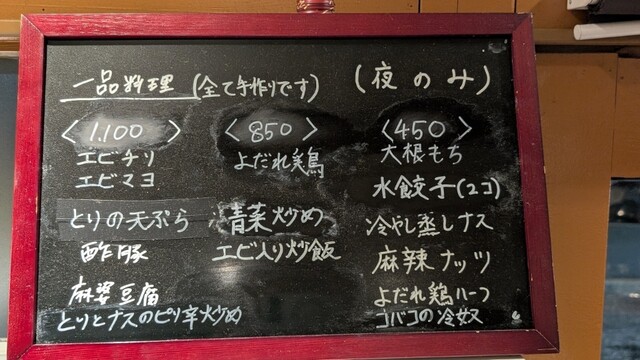 一品料理 (全て手作りです) (夜のみ)
〈1.100〉
エビチリ
エビマヨ
とりの天ぷら
酢豚
麻婆豆腐
とりとナスのピリ辛炒め
〈850〉
よだれ鶏
青菜炒め
エビ入り炒飯
〈450〉
大根もち
水餃子(2コ)
冷やし蒸しナス
麻辣ナッツ
よだれ鶏ハーフ
コバコの冷奴